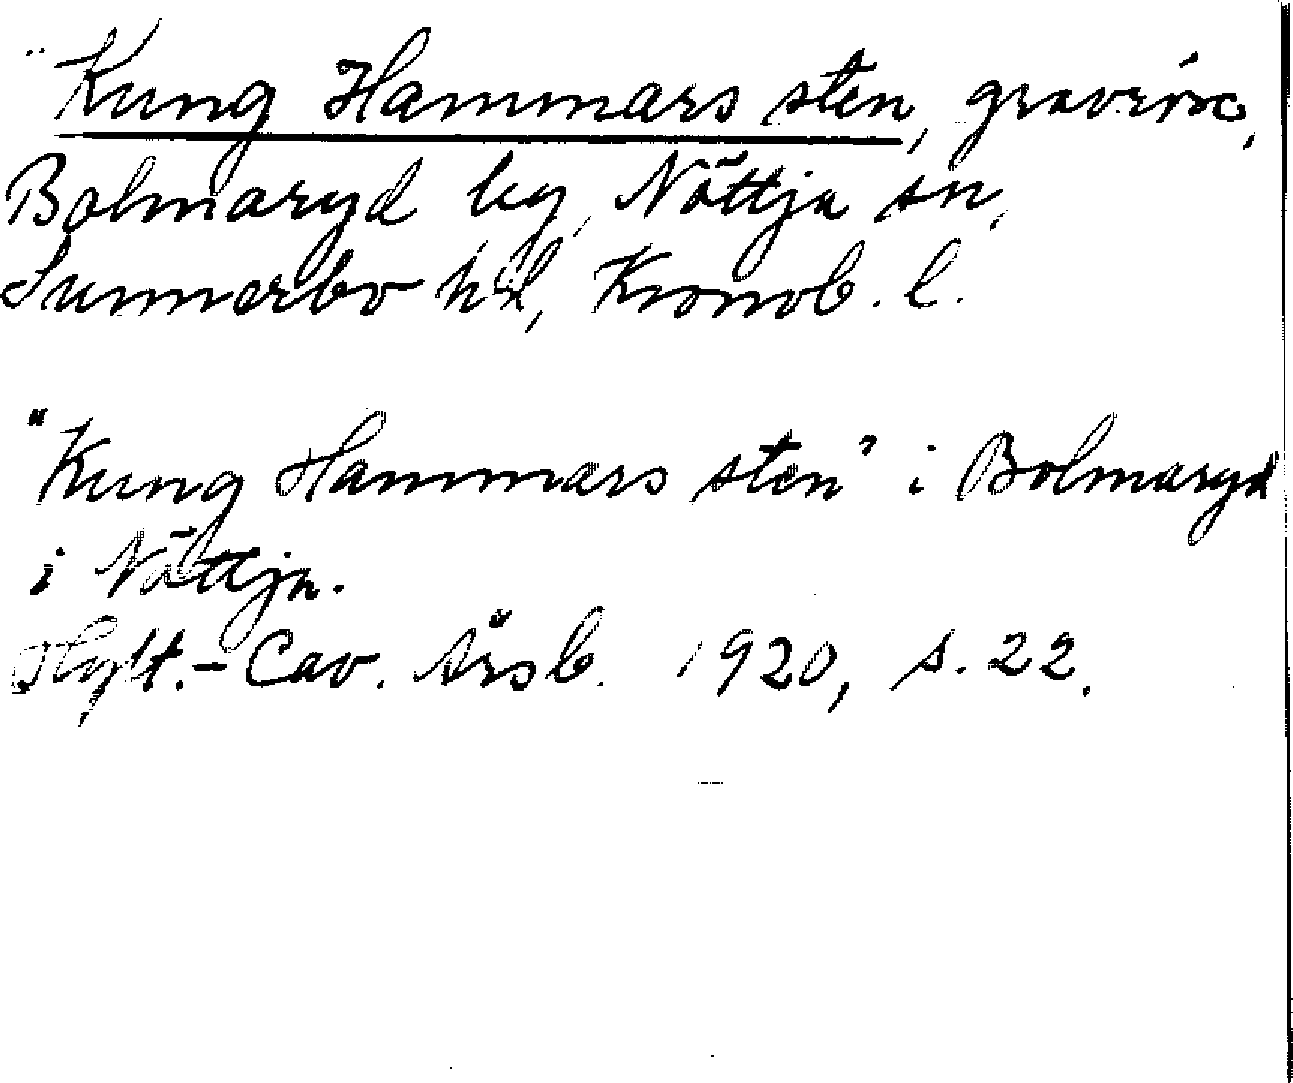 "Kung Hammars sten, gravröse,
Bolmaryd by, Nöttja sn,
Sunnerbo hd, Kronob. l.
"Kung Hammars sten" i Bolmaryd
i Nöttja.
Hylt.-Cav. Årsb. 1920, s. 22.